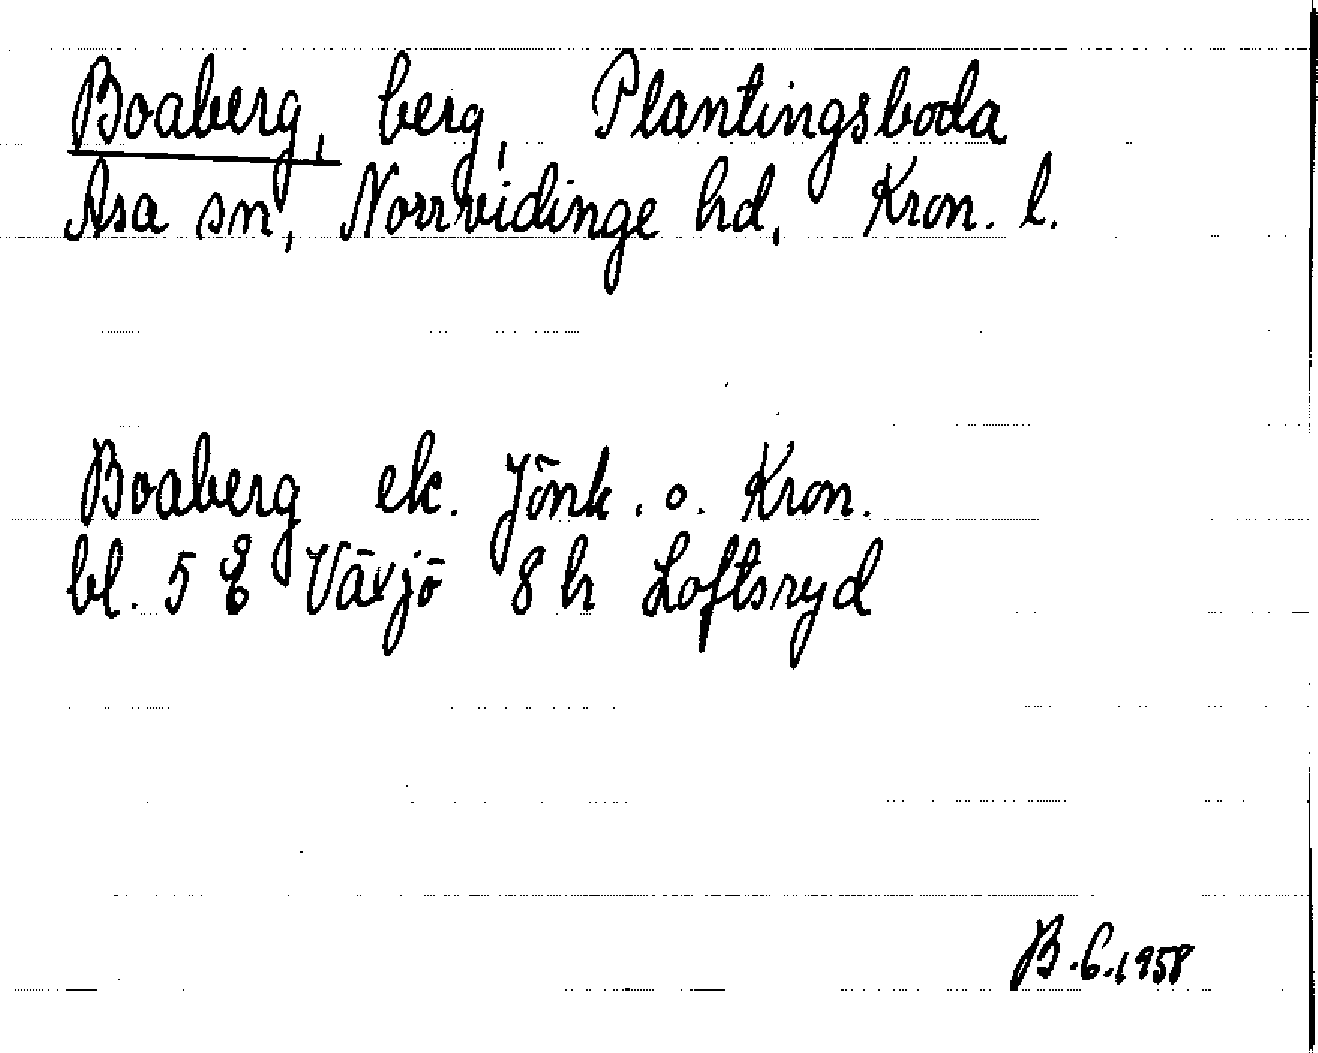 Boaberg, berg, Plantingsboda
Asa sn, Norrvidinge hd, Kron. l.
Boaberg ek. Jönk. o. Kron.
bl. 5 E Växjö 8 h Loftsryd
B.6.1958